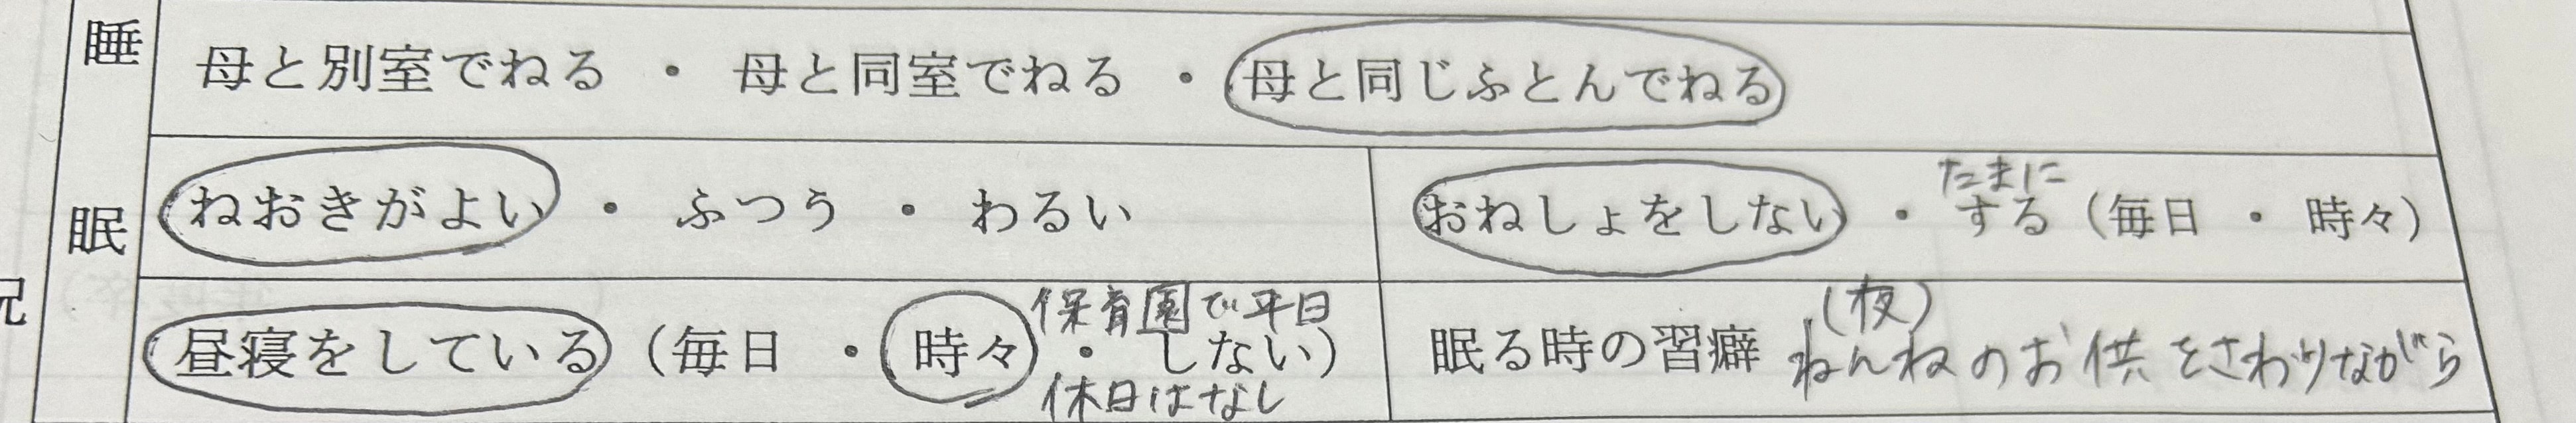 睡眠
母と別室でねる ・ 母と同室でねる ・ 母と同じふとんでねる
ねおきがよい ・ ふつう ・ わるい
たまに
おねしょをしない ・ する（毎日 ・ 時々）
保育園で平日
昼寝をしている（毎日 ・ 時々 ・ しない）
休日はなし
（夜）
眠る時の習癖 ねんねのお供をさわりながら